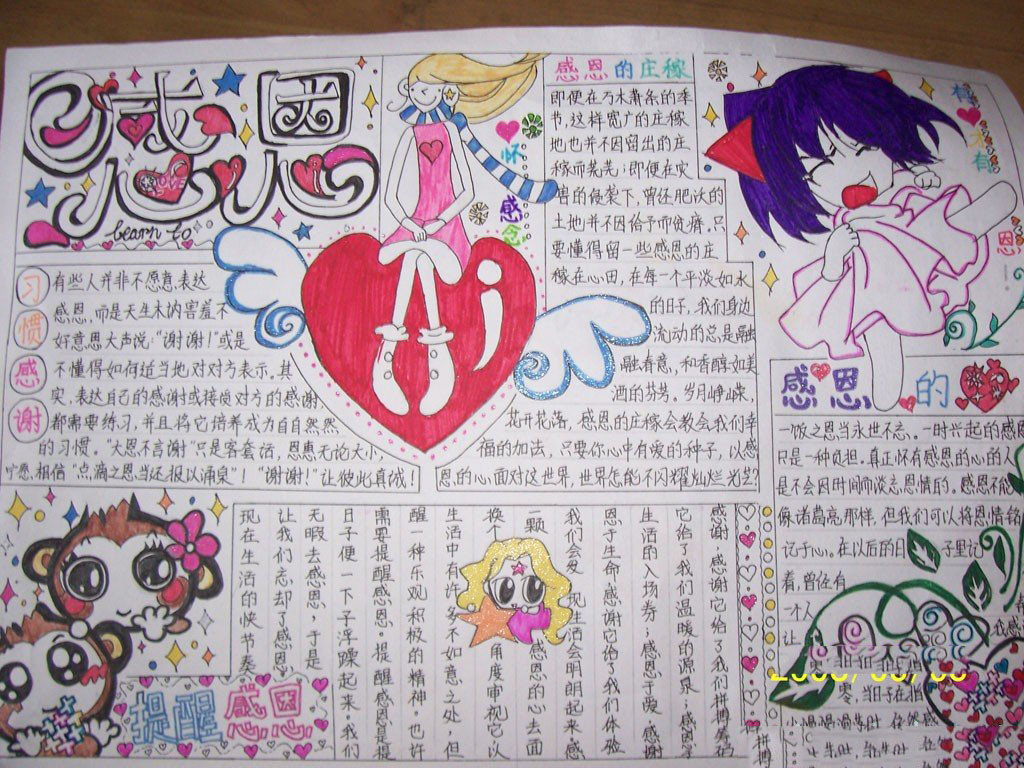 感恩
learn to
习惯感谢
有些人并非不愿意表达
感恩,而是天生木内害羞不
好意思大声说:“谢谢!”或是
不懂得如何适当地对对方表示。其
实,表达自己的感谢或接质对方的感谢,
都需要练习,并且将它培养成为自自然然
的习惯。“大恩不言谢”只是客套话,恩惠无论大小,
宁愿相信“点滴之恩当还报以涌泉”!“谢谢!”让彼此真诚!
怀感恩
感恩的庄稼
即便在万木萧条的季
节,这样宽广的庄稼
地也并不因留出的庄
稼而荒芜;即便在灾
害的侵袭下,曾还肥沃的
土地并不因给予而贫瘠。只
要懂得留一些感恩的庄
稼在心田,在每一个平淡如水
的日子,我们身边
流动的总是融
融春意,和香醇如美
酒的芬芳。岁月峥嵘,
花开花落,感恩的庄稼会教会我们幸
福的加法,只要你心中有爱的种子,以感
恩的心面对这世界,世界怎能不闪耀灿烂光芒?
恩
感恩的
一饭之恩当永世不忘。一时兴起的感恩
只是一种负担。真正怀有感恩的心的人
是不会因时间而淡忘恩情的。感恩不能
像诸葛亮那样,但我们可以将恩情铭
记于心。在以后的日子里记
着,曾经有
一个人
让
感谢,感谢它给了我们拼搏
它给了我们温暖的源泉;感恩于
生活的入场券;感恩于爱,感谢
恩于生命,感谢它给了我们体验
我们会发现生活会明朗起来。感
一颗感恩的心去面
换个角度审视它,以
生活中有许多不如意之处,但
醒一种乐观积极的精神。也许
需要提醒感恩。提醒感恩是提
日子便一下子浮躁起来。我们
无暇去感恩,于是
让我们忘却了感恩
现在生活的快节奏
提醒感恩